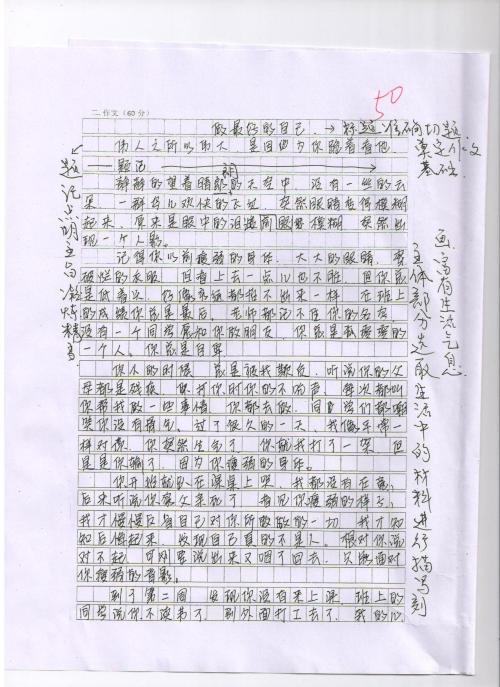 50
二.作文(60分)
做最好的自己
→标题准确切题
奠定作文
基础
伟人之所以伟大,是因为你踮着看他。
——题记
静静的望着晴朗的天空中,没有一丝的云
朵,一群鸟儿欢快的飞过,突然眼睛变得模糊
起来,原来是眼中的泪遮
模糊,突然出
现一个人影。
记得你以前瘦弱的身体,大大的眼睛,穿
破烂的衣服,但看上去一点儿也不脏,但你总
是低着头,好像永远都抬不出来一样,在班上
的成绩你总是最后。老师都记不住你的名字
没有一个同学愿和你做朋友,你总是孤零零的
一个人。你总是自卑
你不的时候,总是被我欺负,听说你的父
母都是残疾,你我你时你的不吭声,每次都叫
你帮我的一些事情,你都去做,同学们都嘲
笑你没有骨气。过了很久的一天,我像平常一
样对你,你突然生气了,你就我打了一架,但
是是你输了,因为你瘦弱的身体。
你开始就趴在课桌上哭,我都没有在意,
后来听说你家父亲死了,看见你瘦弱的样子,
我才慢慢反省自己对你所做的一切,我才知
知后悔起来,发现自己真的不是人。很对你说
对不起,可刚要说出来又咽了回去,只能面对
你瘦弱的背影。
到了第二周,发现你没有来上课,班上的
同学说你不读书了,到外面打工去了,我的心
题记点明主旨凝炼精
画,富有生活气息
主体部分选取生活中的材料进行描写刻